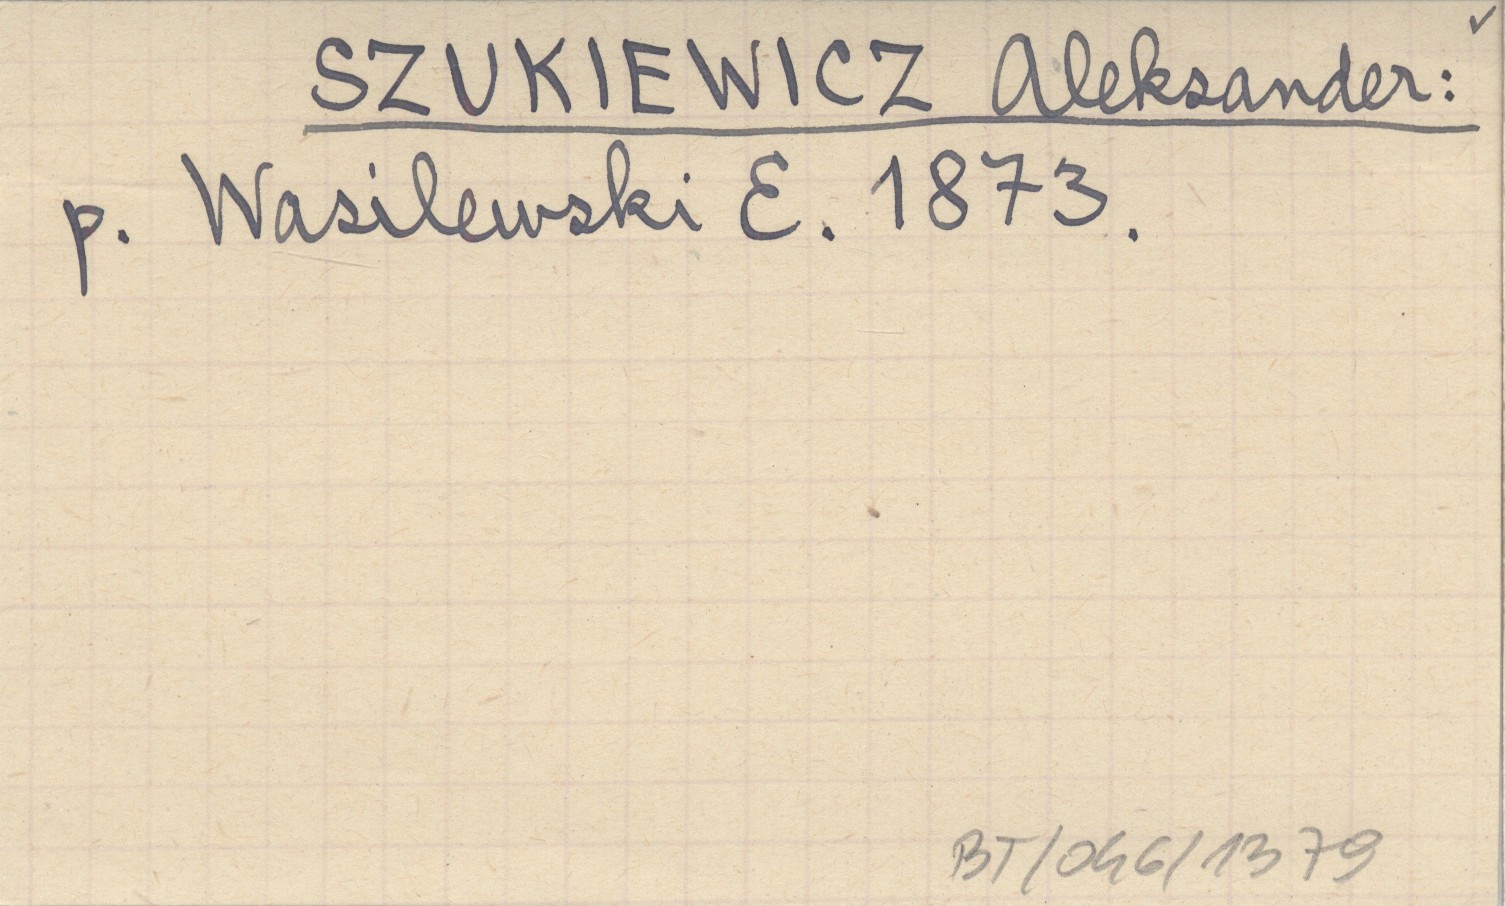 SZUKIEWICZ Aleksander:
p. Wasilewski E. 1873.
BT/046/1379